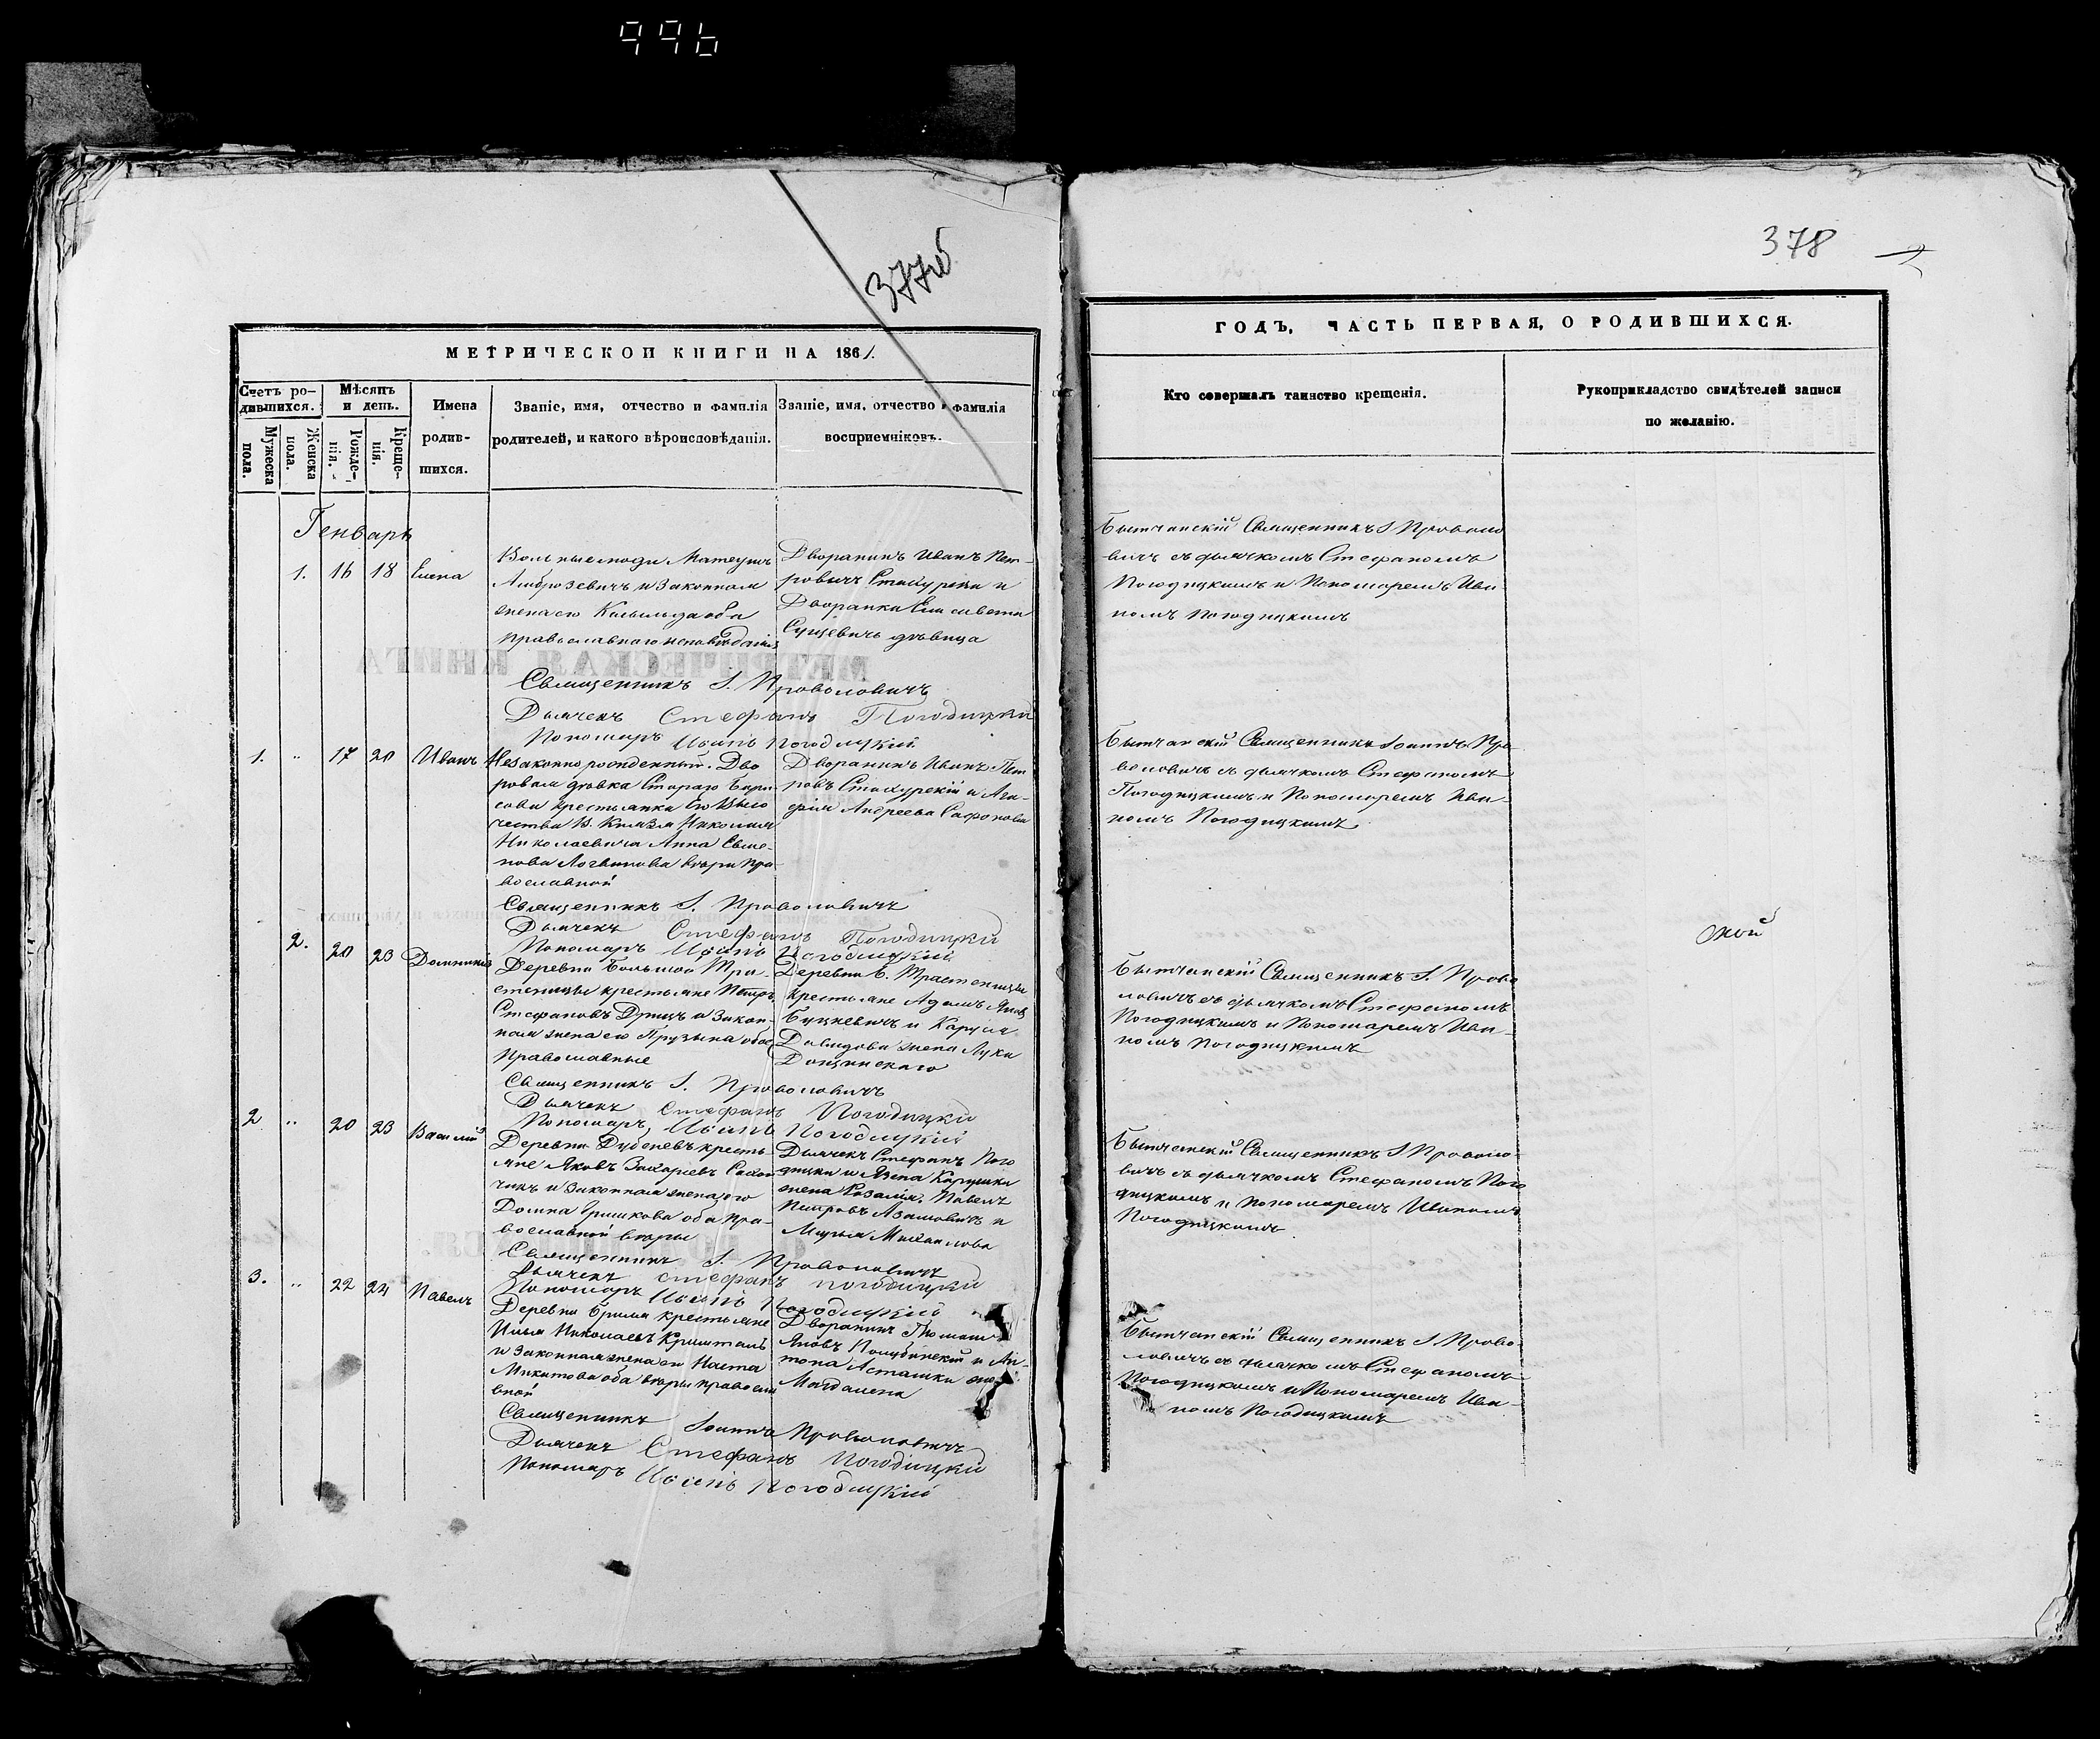 996
377об
378
МЕТРИЧЕСКОЙ КНИГИ НА 1861.
ГОДЪ, ЧАСТЬ ПЕРВАЯ, О РОДИВШИХСЯ.
Счетъ ро-
дившихся.
Мужеска
пола.
Женска
пола.
Мѣсяцъ
и день.
Рожде-
нія.
Креще-
нія.
Имена
родив-
шихся.
Званіе, имя, отчество и фамилія
родителей, и какого вѣроисповѣданія.
Званіе, имя, отчество и фамилія
восприемниковъ.
Кто совершалъ таинство крещенія.
Рукоприкладство свидѣтелей записи
по желанію.
Генварь
1. 16 18 Елена
Вольные люди
и Законная
жена его оба
православнаго исповѣданія
Дворанинъ Иванъ Пет-
ровичъ и
Дворанка Елисавета
дѣвица
Священникъ І. Проволовичъ
съ дьячкомъ Стефаномъ
Погодицкимъ и Пономаремъ Ива-
номъ Погодицкимъ
Священникъ І. Проволовичъ
Дьячекъ Стефанъ Погодицки
Пономарь Иванъ Погодицкий
1. " 17 20 Иванъ
Незаконно рожденный. Дво
ровая дѣвка Стараго Бори-
сова крестьянка Его Высо
чества В. Князя Николая
Николаевича Анна Семе-
нова Логвинова вѣры пра-
вославной
Дворанинъ Иванъ Пет
ровъ и Ага-
фія Андреева Сафонова
Священникъ Іоаннъ Про-
воловичъ съ дьячкомъ Стефаномъ
Погодицкимъ и Пономаремъ Ива-
номъ Погодицкимъ
Священникъ І. Проволовичъ
Дьячекъ Стефанъ Погодицки
Пономарь Иванъ Погодицкий
2. 20 23
Деревни Большой Тро-
стеницы крестьяне Петръ
Стефановъ и Закон-
ная жена его оба
Православные
Деревни Б. Тростеницы
крестьяне Адамъ
и
Давидова жена Луки
Священникъ І. Прово
ловичъ съ дьячкомъ Стефаномъ
Погодицкимъ и Пономаремъ Ива-
номъ Погодицкимъ
Священникъ І. Проволовичъ
Дьячекъ Стефанъ Погодицки
Пономарь Иванъ Погодицкий
2 " 20 23 Василій
Деревни кресть-
яне Яковъ Захаріевъ
и Законная жена его
Домна оба пра-
вославной вѣры
Дьячекъ Стефанъ Пого
дицки и
жена Розалія. Павелъ
Петровъ и
Марья Михайлова
Священникъ І. Проволо-
вичъ съ дьячкомъ Стефаномъ Пого
дицкимъ и Пономаремъ Иваномъ
Погодицкимъ
Священникъ І. Проволовичъ
Дьячекъ Стефанъ Погодицки
Пономарь Иванъ Погодицкий
3. " 22 24 Павелъ
Деревни крестьяне
Илья Николаевъ
и Законная жена его Наста
Микитова оба вѣры правосла
вной
Дворанинъ
и Ан-
тона жена
Магдалена
Священникъ І. Прово-
ловичъ съ дьячкомъ Стефаномъ
Погодицкимъ и Пономаремъ Ива-
номъ Погодицкимъ
Священникъ Іоаннъ Проволовичъ
Дьячекъ Стефанъ Погодицки
Пономарь Иванъ Погодицкий